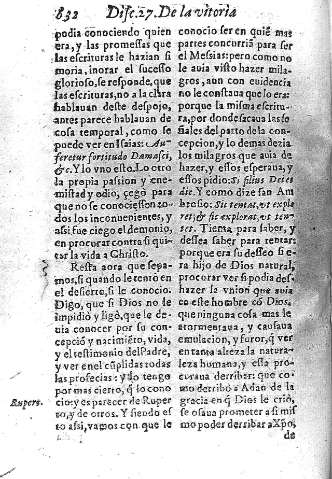 832 Disc.27. De la vitoria
podia conociendo quien
era, y las promessas que
las escrituras le hazian si
moria, inorar el sucesso
glorioso, se responde, que
las escrituras, no a la clara
hablauan deste despojo,
antes parece hablauan de
cosa temporal, como se
puede ver en Isaias: Au-
feretur fortitudo Damasci,
&c. Y lo vno esto. Lo otro
la propia passion y ene-
mistad y odio, cegò para
que no se conociessen to-
dos los inconuenientes, y
assi fue ciego el demonio,
en procurar contra si qui-
tar la vida a Christo.
Resta aora que sepa-
mos, si quando le tentò en
el desierto, si le conocio.
Digo, que si Dios no le
impidio y ligò, que le de-
uia conocer por su con-
cepciõ y nacimiẽto, vida,
y el testimonio del Padre,
y ver en el cũplidas todas
las profecias: y lo tengo
por mas cierto, q̃ lo cono
cio: y es parecer de Ruper
Rupers.
to, y de otros. Y siendo es
to assi, vamos con que le
conocio ser en quiẽ mas
partes concurriã para ser
el Messias: pero como no
le auia visto hazer mila-
gros, aun con euidencia
no le constaua que lo era:
porque la misma escritu-
ra, por donde sacaua las se
ñales del parto de la con-
cepcion, y lo demas dezia
los milagros que auia de
hazer, y essos esperaua, y
essos pidio: Si filius Dei es
dic. Y como dize san Am
brosio: Sic tentat, vt explo
ret, & sic explorat, vt ten-
tet. Tienta para saber, y
dessea saber para tentar:
porque era su desseo si e-
ra hijo de Dios natural,
procurar ver si podia des-
hazer la vnion que auia
en este hombre cõ Dios,
que ninguna cosa mas le
atormentaua, y causaua
emulacion, y furor, q̃ ver
en tanta alteza la natura-
leza humana, y essa pro-
curaua derribar: que co-
mo derribò a Adan de la
gracia en q̃ Dios le criò,
se osaua prometer a si mis
mo poder derribar a Xp̃o,
de